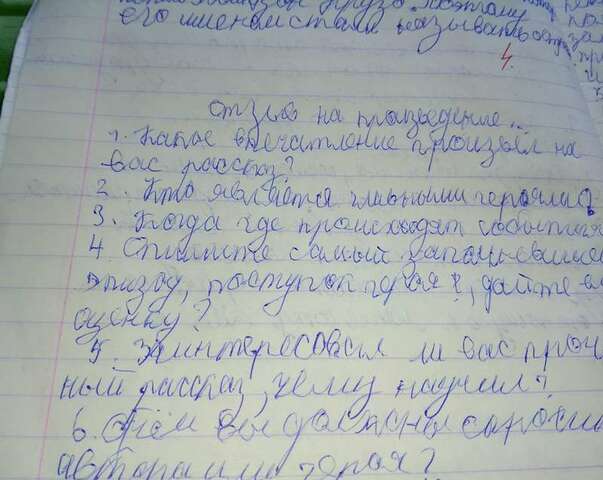 его именем стали называть
4.
отзыв на произведение...
1. Какое впечатление произвёл на
вас рассказ?
2. Кто является главными героями
3. Когда где происходят события
4 Опишите самый запомн
эпизод, поступок героя, дайте
оценку?
5. Заинтересовал ли вас проч
ный рассказ, чему научил?
6. О чём вы должны спроси
автора или героя?